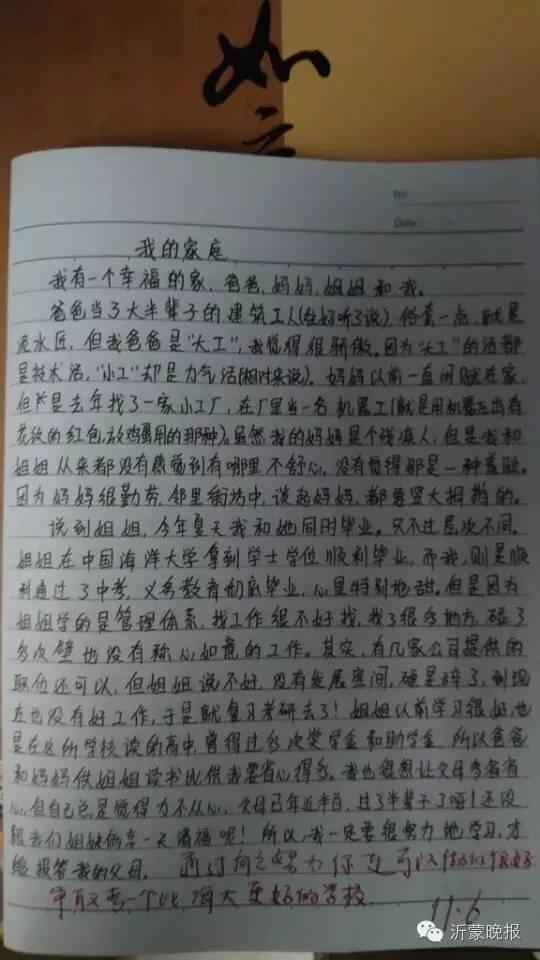 如
No
Date
我的家庭
我有一个幸福的家，爸爸、妈妈、姐姐和我。
爸爸当了大半辈子的建筑工人(往好听了说)，俗套一点，就是
泥水匠，但我爸爸是“大工”，我觉得很骄傲。因为“大工”的活都
是技术活，“小工”却是力气活(相对来说)。妈妈以前一直闲赋在家，
但是去年找了一家小工厂，在厂里当一名机器工(就是用机器压出有
花纹的红包，放鸡蛋用的那种)。虽然我的妈妈是个残疾人，但是我和
姐姐从来都没有感觉到有哪里不舒心，没有觉得那是一种羞耻。
因为妈妈很勤劳，邻里街坊中，谈起妈妈，都要竖大拇指的。
说到姐姐，今年夏天我和她同时毕业。只不过层次不同。
姐姐在中国海洋大学拿到学士学位顺利毕业，而我，则是顺
利通过了中考，义务教育彻底毕业，心里特别地甜。但是因为
姐姐学的是管理体系，找工作很不好找，找了很多地方，碰了
多次壁也没有称心如意的工作。其实，有几家公司提供的
职位还可以，但姐姐说不好，没有发展空间，硬是辞了，到现
在也没有好工作，于是就复习考研去了！姐姐以前学习很好，也
是在这所学校读的高中，曾得过多次奖学金和助学金，所以爸爸
和妈妈供姐姐读书比供我要省心得多。我也很想让父母多省省
心，但自己总是觉得力不从心，父母已年近半百，过了半辈子了呀！还没
跟我们姐妹俩享一天清福呢！所以，我一定要很努力地学习，才
能报答我的父母。通过自己努力你也可以做的很好
争取考一个比海大更好的学校
11.6
沂蒙晚报